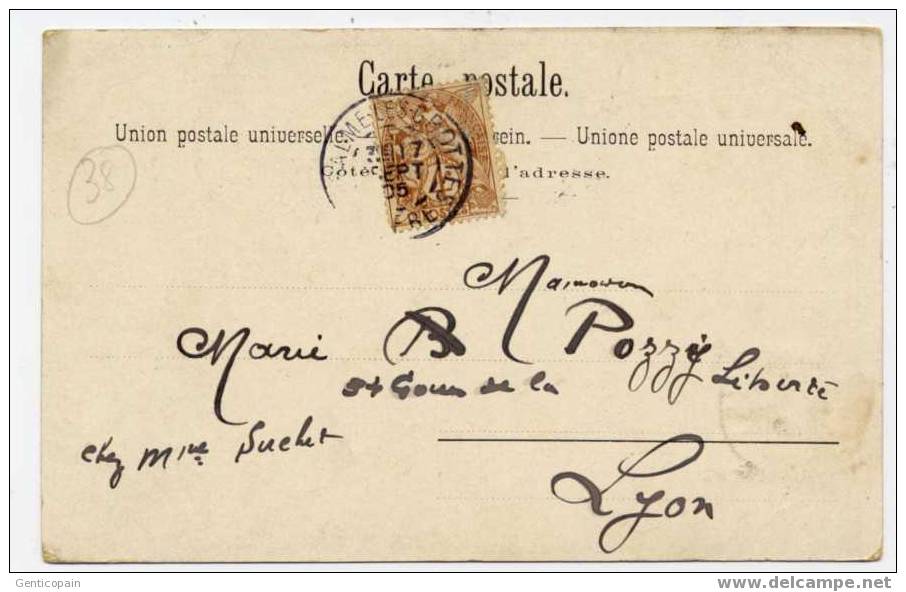 Carte postale.
Union postale universelle. — ...rein. — Unione postale universale.
Côté l'adresse.
LA BALME LES GROTTES
17
SEPT
05
38
Marie B Pozzi
54 Cours de la Liberté
chez Mme Suchet
Lyon
Genticopain
www.delcampe.net